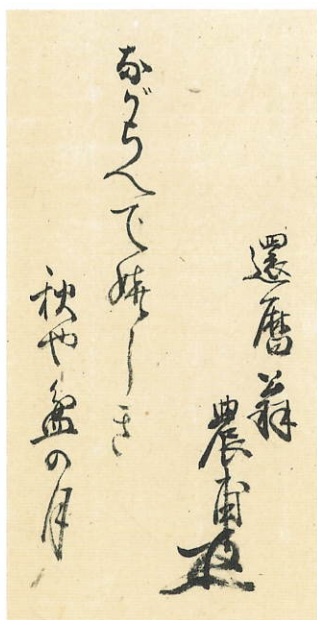 還暦翁
農甫
ながらへて嬉しき
秋や盆の月